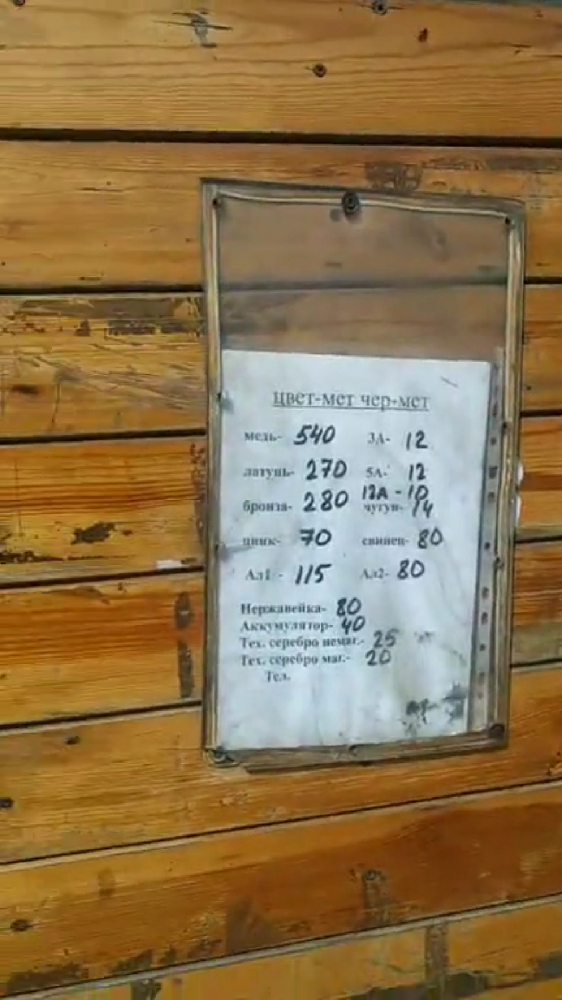 цвет-мет чер-мет
медь- 540 3А- 12
латунь- 270 5А- 12
12А - 10
бронза- 280 чугун- 14
цинк- 70 свинец- 80
Ал1 - 115 Ал2- 80
Нержавейка- 80
Аккумулятор- 40
Тех. серебро немаг.- 25
Тех. серебро маг.- 20
Тел.